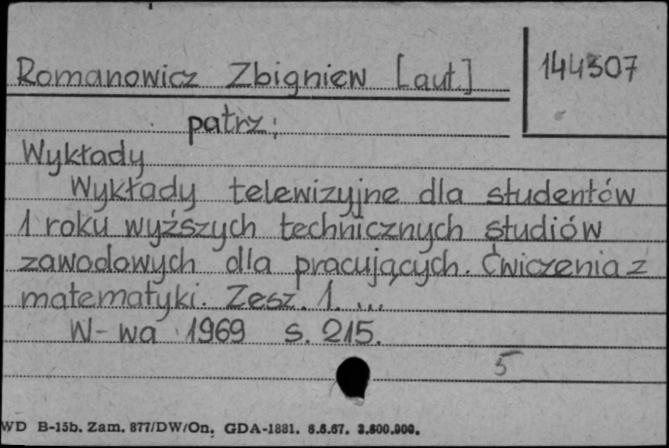 Romanowicz Zbigniew [aut.]
144307
patrz:
Wykłady
Wykłady telewizyjne dla studentów
1 roku wyższych technicznych studiów
zawodowych dla pracujących. Ćwiczenia z
matematyki. Zesz. 1. ...
W-wa 1969 s. 215.
5
WD B-15b. Zam. 877/DW/On. GDA-1881. 6.6.67. 3.600.000.